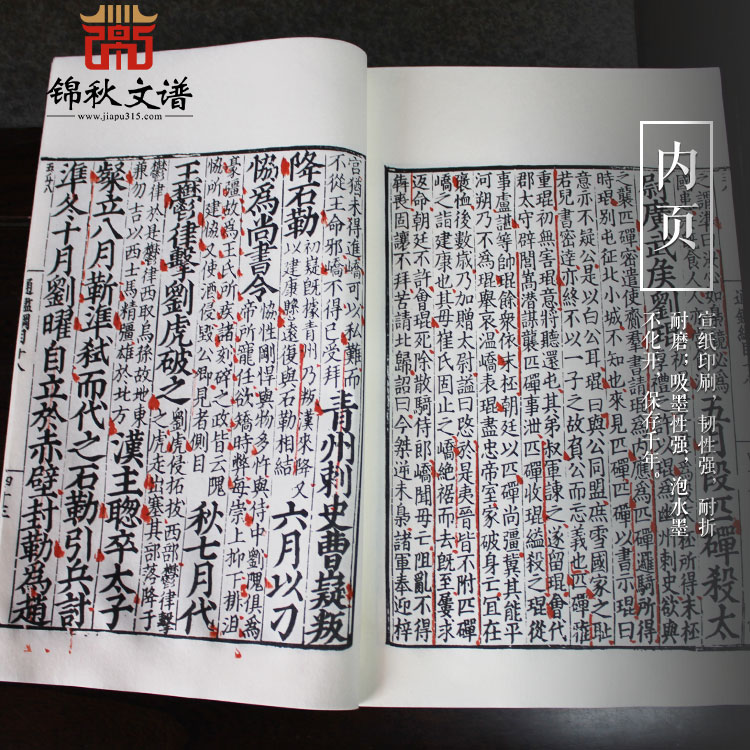 锦秋文谱
www.jiapu315.com
内页
宣纸印刷，韧性强，耐折
耐磨；吸墨性强，泡水墨
不化开，保存千年。
五月段匹磾殺太
尉廣武侯劉琨
時琨別屯征北小城不知也來見匹磾匹磾以書示琨曰
意亦不疑公是以白公耳琨曰與公同盟庶雪國家之恥
若兒書密達亦終不以一子之故負公而忘義也匹磾雅
重琨初無害琨意將聽還屯其弟叔軍諫之遂留琨會代
郡太守辟閭嵩潛謀襲匹磾事泄匹磾收琨縊殺之琨從
事盧諶等帥琨餘衆依末柸朝廷以匹磾尚彊冀其能平
河朔乃不為琨舉哀溫嶠表琨盡忠帝室家破身亡宜在
褒恤後數歲乃加贈太尉諡曰愍於是夷晉皆不附匹磾
嶠之詣建康也其母崔氏固止之嶠絕裾而去既至屢求
返命朝廷不許會琨死除散騎侍郎嶠聞母亡阻亂不得
犇喪固讓不拜苦請北歸詔曰今桀逆未梟諸軍奉迎梓
宮猶未得進嶠可以私難而
不從王命邪嶠不得已受拜
青州刺史曹嶷叛
降石勒
初嶷既據青州乃叛漢來降又
以建康懸遠復與石勒相結
六月以刁
恊為尚書令
恊性剛悍與物多忤與侍中劉隗俱為
帝所寵任欲矯時弊每崇上抑下排沮
豪彊故為王氏所疾諸刻碎之政皆云隗
恊所建恊又使酒侵毀公卿見者側目
秋七月代
王鬱律擊劉虎破之
劉虎侵拓跋西部鬱律擊
之虎走出塞其部落降于
鬱律於是鬱律西取烏孫故地東
兼勿吉以西士馬精彊雄於北方
漢主聦卒太子
粲立八月靳準弒而代之石勒引兵討
準冬十月劉曜自立於赤壁封勒為趙
通鑑綱目十八
四十三